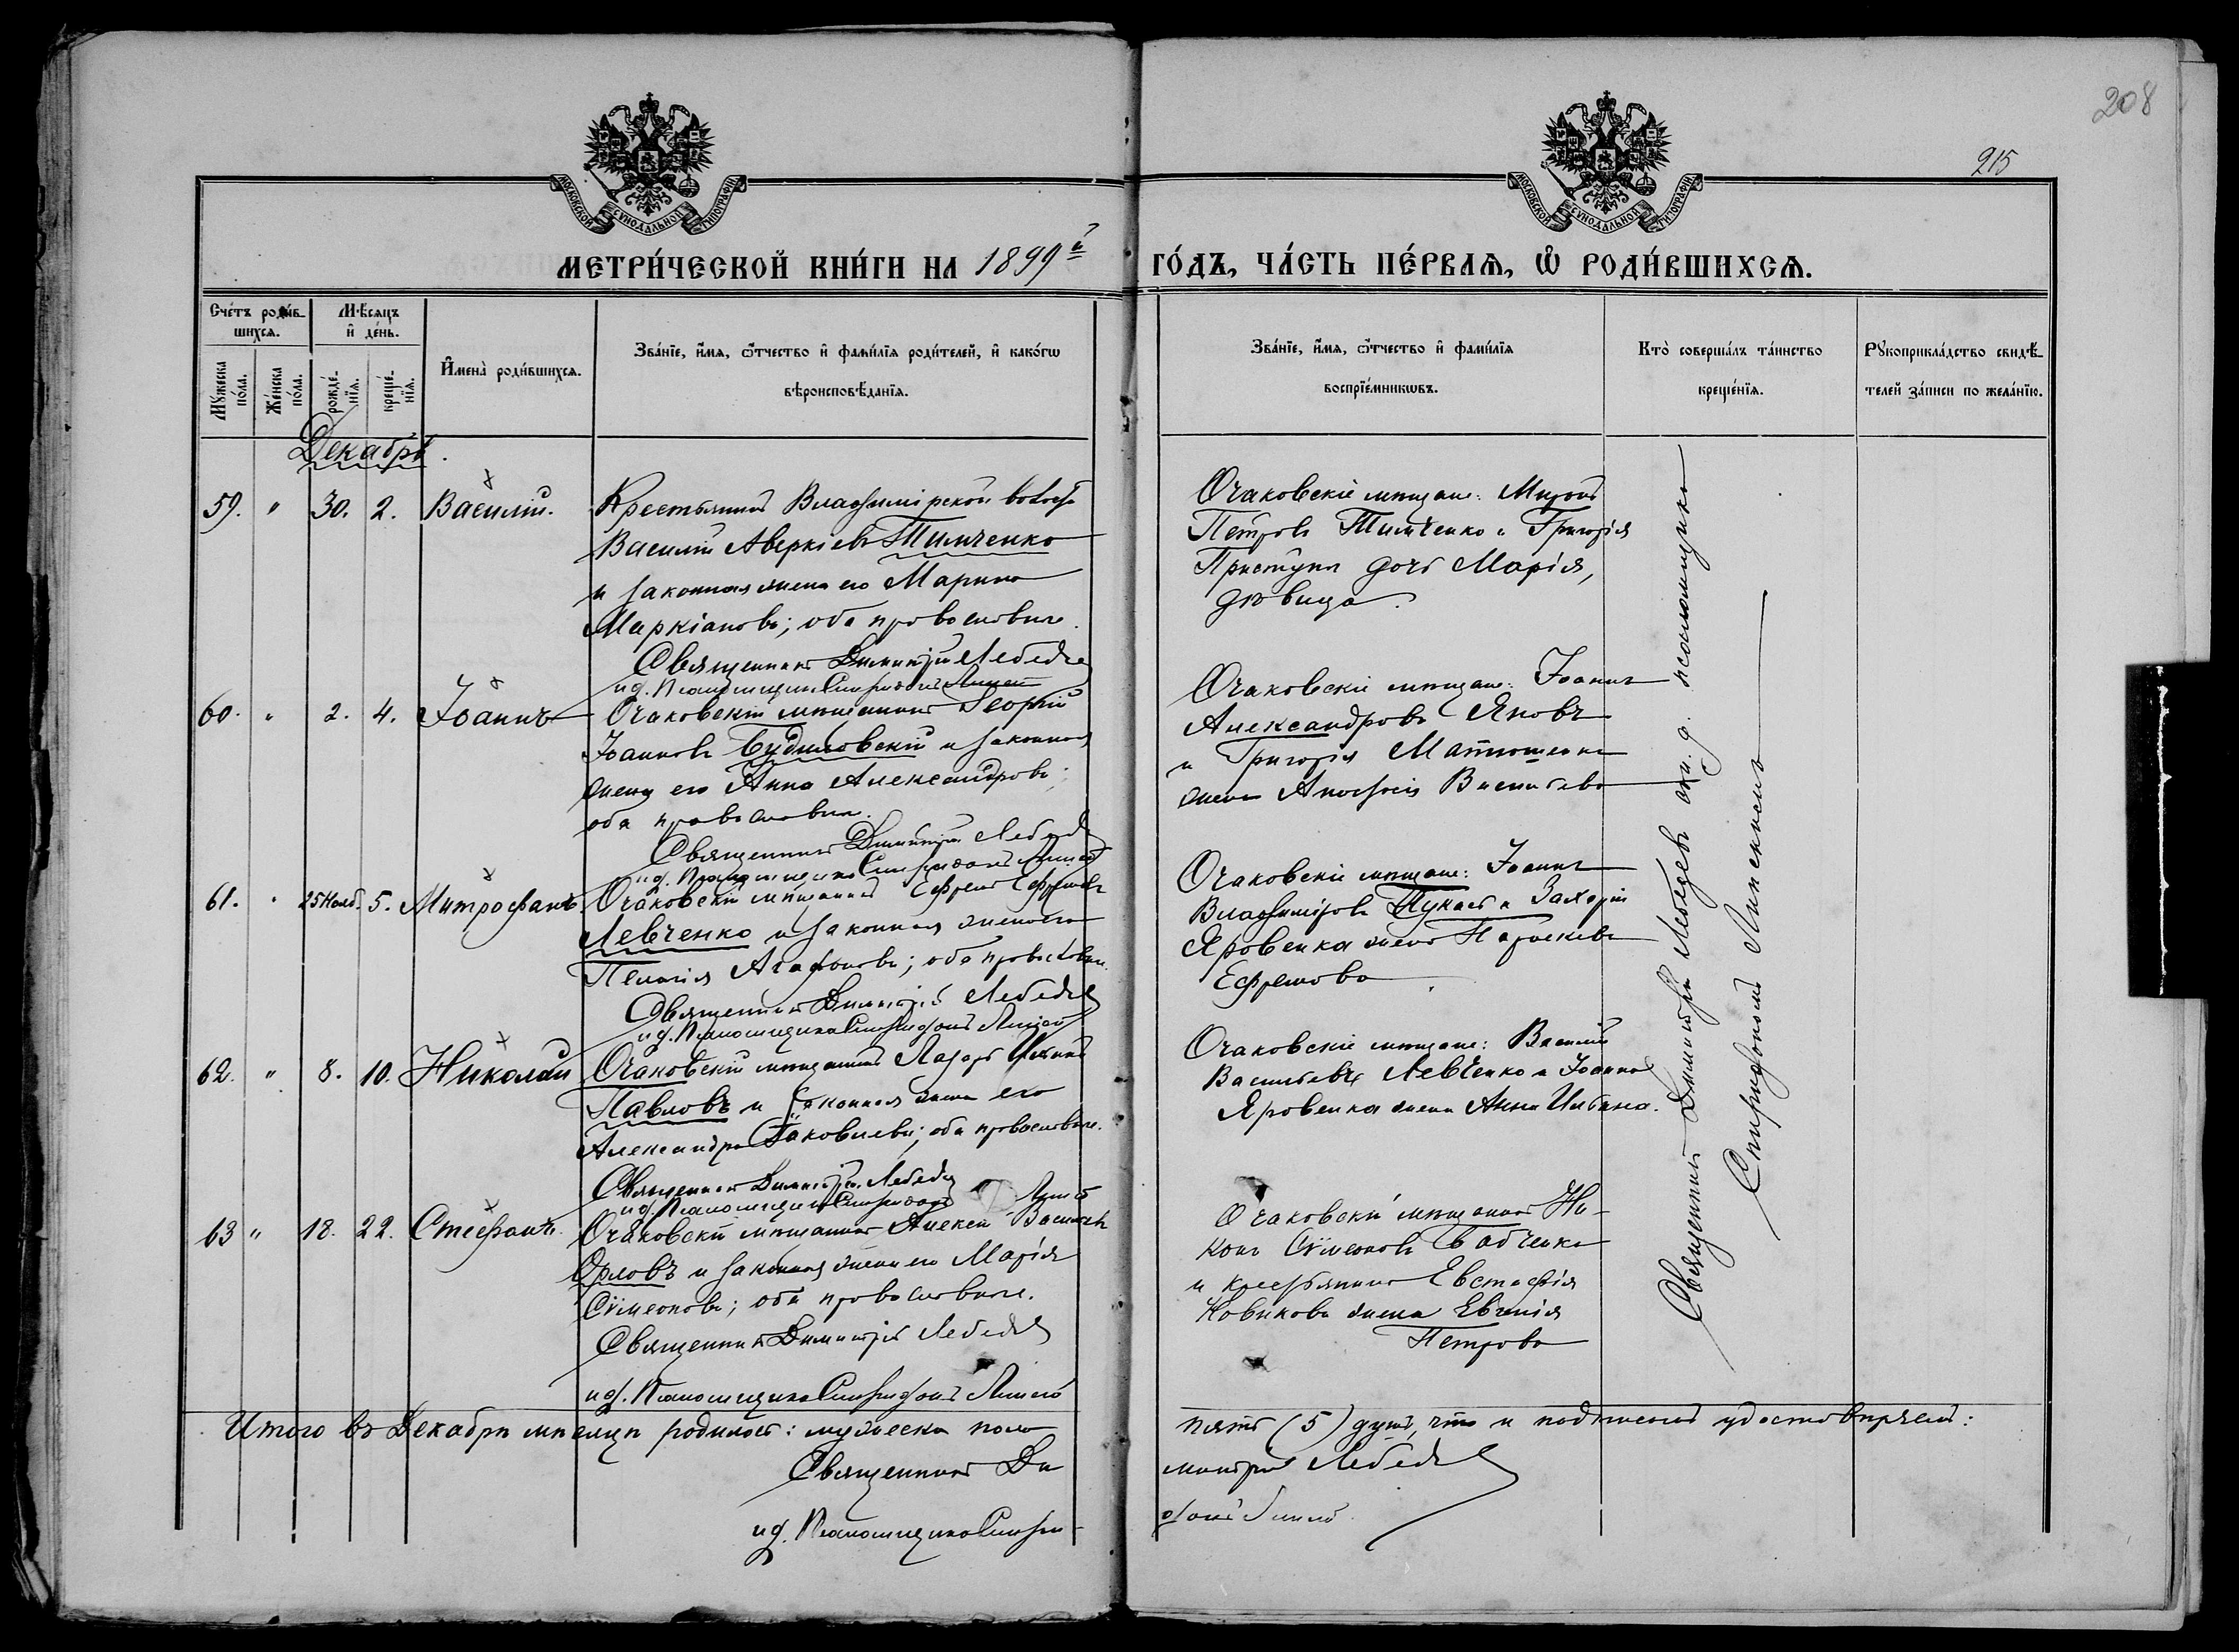 208
215
МОСКОВСКОЙ СѴНОДАЛЬНОЙ ТИПОГРАФІИ
МОСКОВСКОЙ СѴНОДАЛЬНОЙ ТИПОГРАФІИ
МЕТРИ́ЧЕСКОЙ КНИ́ГИ НА 1899й ГО́ДЪ, ЧА́СТЬ ПЕ́РВАѦ, Ѽ РОДИ́ВШИХСѦ.
Сче́тъ роди́в-
шихсѧ.
Мꙋжеска по́ла.
Же́нска по́ла.
Мѣ́сяцъ
и҆ де́нь.
рожде́-
нїѧ.
креще́-
нїѧ.
И҆мена̀ роди́вшихсѧ.
Зва́нїе, и҆́мѧ, ѻ҆́тчество и҆ фами́лїѧ роди́телей, и҆ како́гѡ
вѣроисповѣ́данїѧ.
Зва́нїе, и҆́мѧ, ѻ҆́тчество и҆ фами́лїѧ
воспрїе́мникѡвъ.
Кто̀ соверша́лъ та́инство
креще́нїѧ.
Рꙋкоприкла́дство свидѣ́-
телей за́писи по жела́нїю.
Декабрь.
59. " 30. 2. Василій.
Крестьянинъ Владимірской волости
Василій Аверкіевъ Тимченко
и законная жена его Марина
Маркіанова; оба православные.
Священникъ Димитрій Лебедевъ
и д. Псаломщика Спиридонъ
Очаковскіе мѣщане: Миронъ
Петровъ Тимченко и Григорія
Приступы дочь Марія,
дѣвица.
60. " 2. 4. Іоаннъ
Очаковскій мѣщанинъ Георгій
Іоанновъ Будиловскій и законная
жена его Анна Александрова;
оба православные.
Священникъ Димитрій Лебедевъ
и д. Псаломщика Спиридонъ
Очаковскіе мѣщане: Іоаннъ
Александровъ Яновъ
и Григорія Матюшенка
жена Васильева
61. " 25 Нояб. 5. Митрофанъ
Очаковскій мѣщанинъ Ефремъ Ефремовъ
Левченко и законная жена его
Пелагія Агафонова; оба православные.
Священникъ Димитрій Лебедевъ
и д. Псаломщика Спиридонъ
Очаковскіе мѣщане: Іоаннъ
Владиміровъ и Захарія
Яровенка жена Параскева
Ефремова.
62. " 8. 10. Николай
Очаковскій мѣщанинъ Лазарь
Павловъ и законная жена его
Александра Іаковлева; оба православные.
Священникъ Димитрій Лебедевъ
и д. Псаломщика Спиридонъ
Очаковскіе мѣщане: Василій
Васильевъ Левченко и Іоанна
Яровенка жена Анна
63 " 18. 22. Стефанъ.
Очаковскій мѣщанинъ Алексѣй Васильевъ
Орловъ и законная жена его Марія
Сѵмеонова; оба православные.
Священникъ Димитрій Лебедевъ
и д. Псаломщика Спиридонъ
Очаковскій мѣщанинъ Ни-
конъ Сѵмеоновъ Бабченко
и крестьянина Евстафія
Новикова жена Евгенія
Петрова
Священникъ Димитрій Лебедевъ и. д. псаломщика
Спиридонъ
Итого въ Декабрѣ мѣсяцѣ родилось: мужеска пола пять (5) душъ, что и подписомъ удостовѣряемъ:
Священникъ Ди митрій Лебедевъ
и д. Псаломщика Спири- донъ